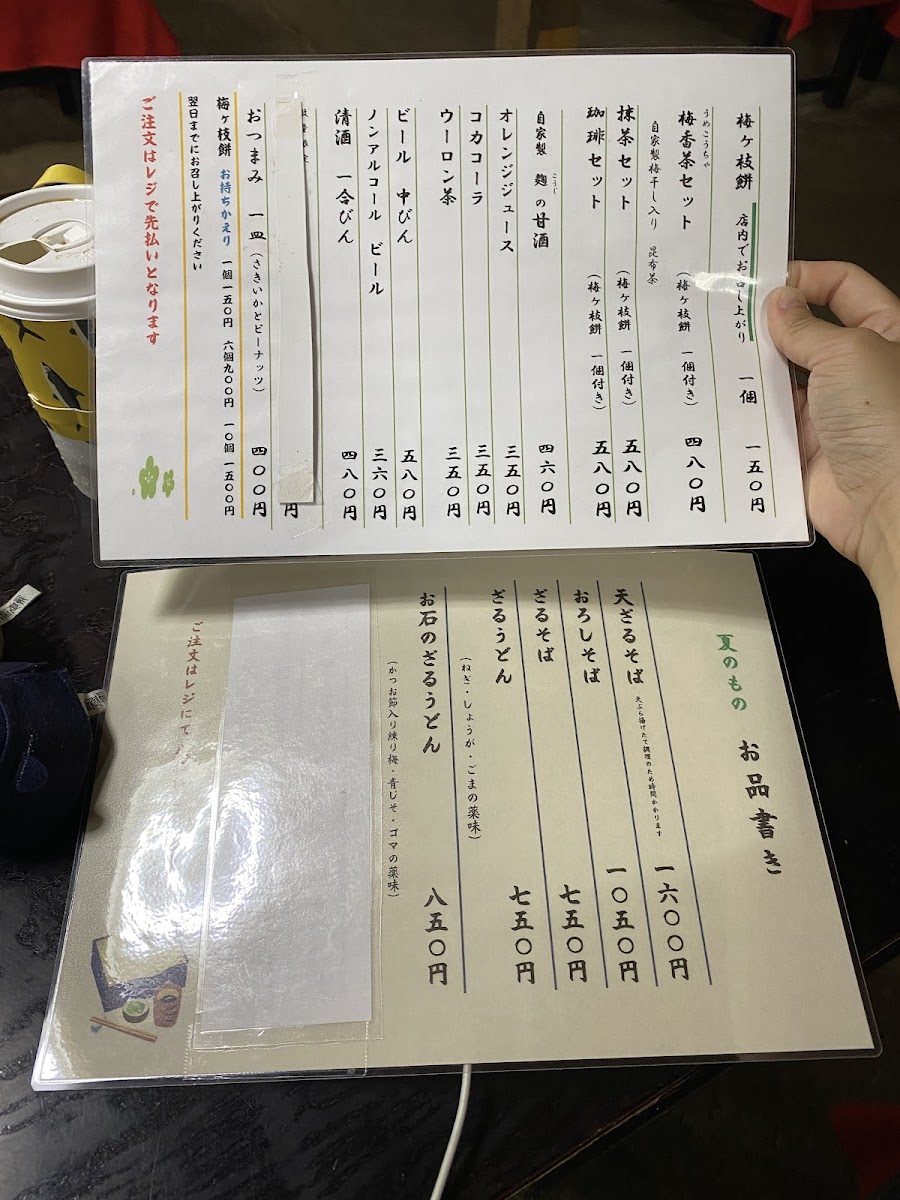 梅ヶ枝餅 店内でお召し上がり 一個 一五〇円
うめこうちゃ
梅香茶セット (梅ヶ枝餅 一個付き) 四八〇円
自家製梅干し入り 昆布茶
抹茶セット (梅ヶ枝餅 一個付き) 五八〇円
珈琲セット (梅ヶ枝餅 一個付き) 五八〇円
こうじ
自家製 麹の甘酒 四六〇円
オレンジジュース 三五〇円
コカコーラ 三五〇円
ウーロン茶 三五〇円
ビール 中びん 五八〇円
ノンアルコール ビール 三六〇円
清酒 一合びん 四八〇円
円
おつまみ 一皿 (さきいかとピーナッツ) 四〇〇円
梅ヶ枝餅 お持ちかえり 一個一五〇円 六個九〇〇円 一〇個 一五〇〇円
翌日までにお召し上がりください
ご注文はレジで先払いとなります
夏のもの お品書き
天ざるそば 一六〇〇円
天ぷら揚げたて調理のため時間かかります
おろしそば 一〇五〇円
ざるそば 七五〇円
ざるうどん 七五〇円
(ねぎ・しょうが・ごまの薬味)
お石のざるうどん 八五〇円
(かつお節入り練り梅・青じそ・ゴマの薬味)
ご注文はレジにて